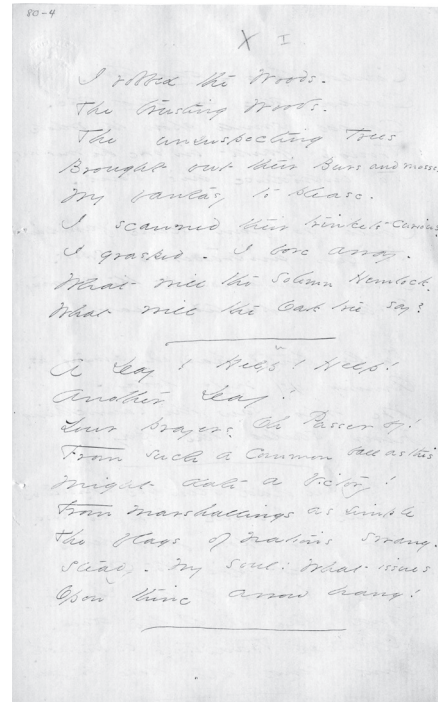 80-4
X I
I robbed the Woods.
The trusting Woods.
The unsuspecting Trees
Brought out their Burs and mosses
My fantasy to please.
I scanned their trinkets curious
I grasped. I bore away.
What will the Solemn Hemlock.
What will the Oak tree say?
A Day! Help! Help!
Another Day!
Your prayers, Oh Passer by!
From such a common ball as this
Might date a Victory!
From marshallings as simple
The flags of nations swang.
Steady. My soul: What issues
Upon thine arrow hang!